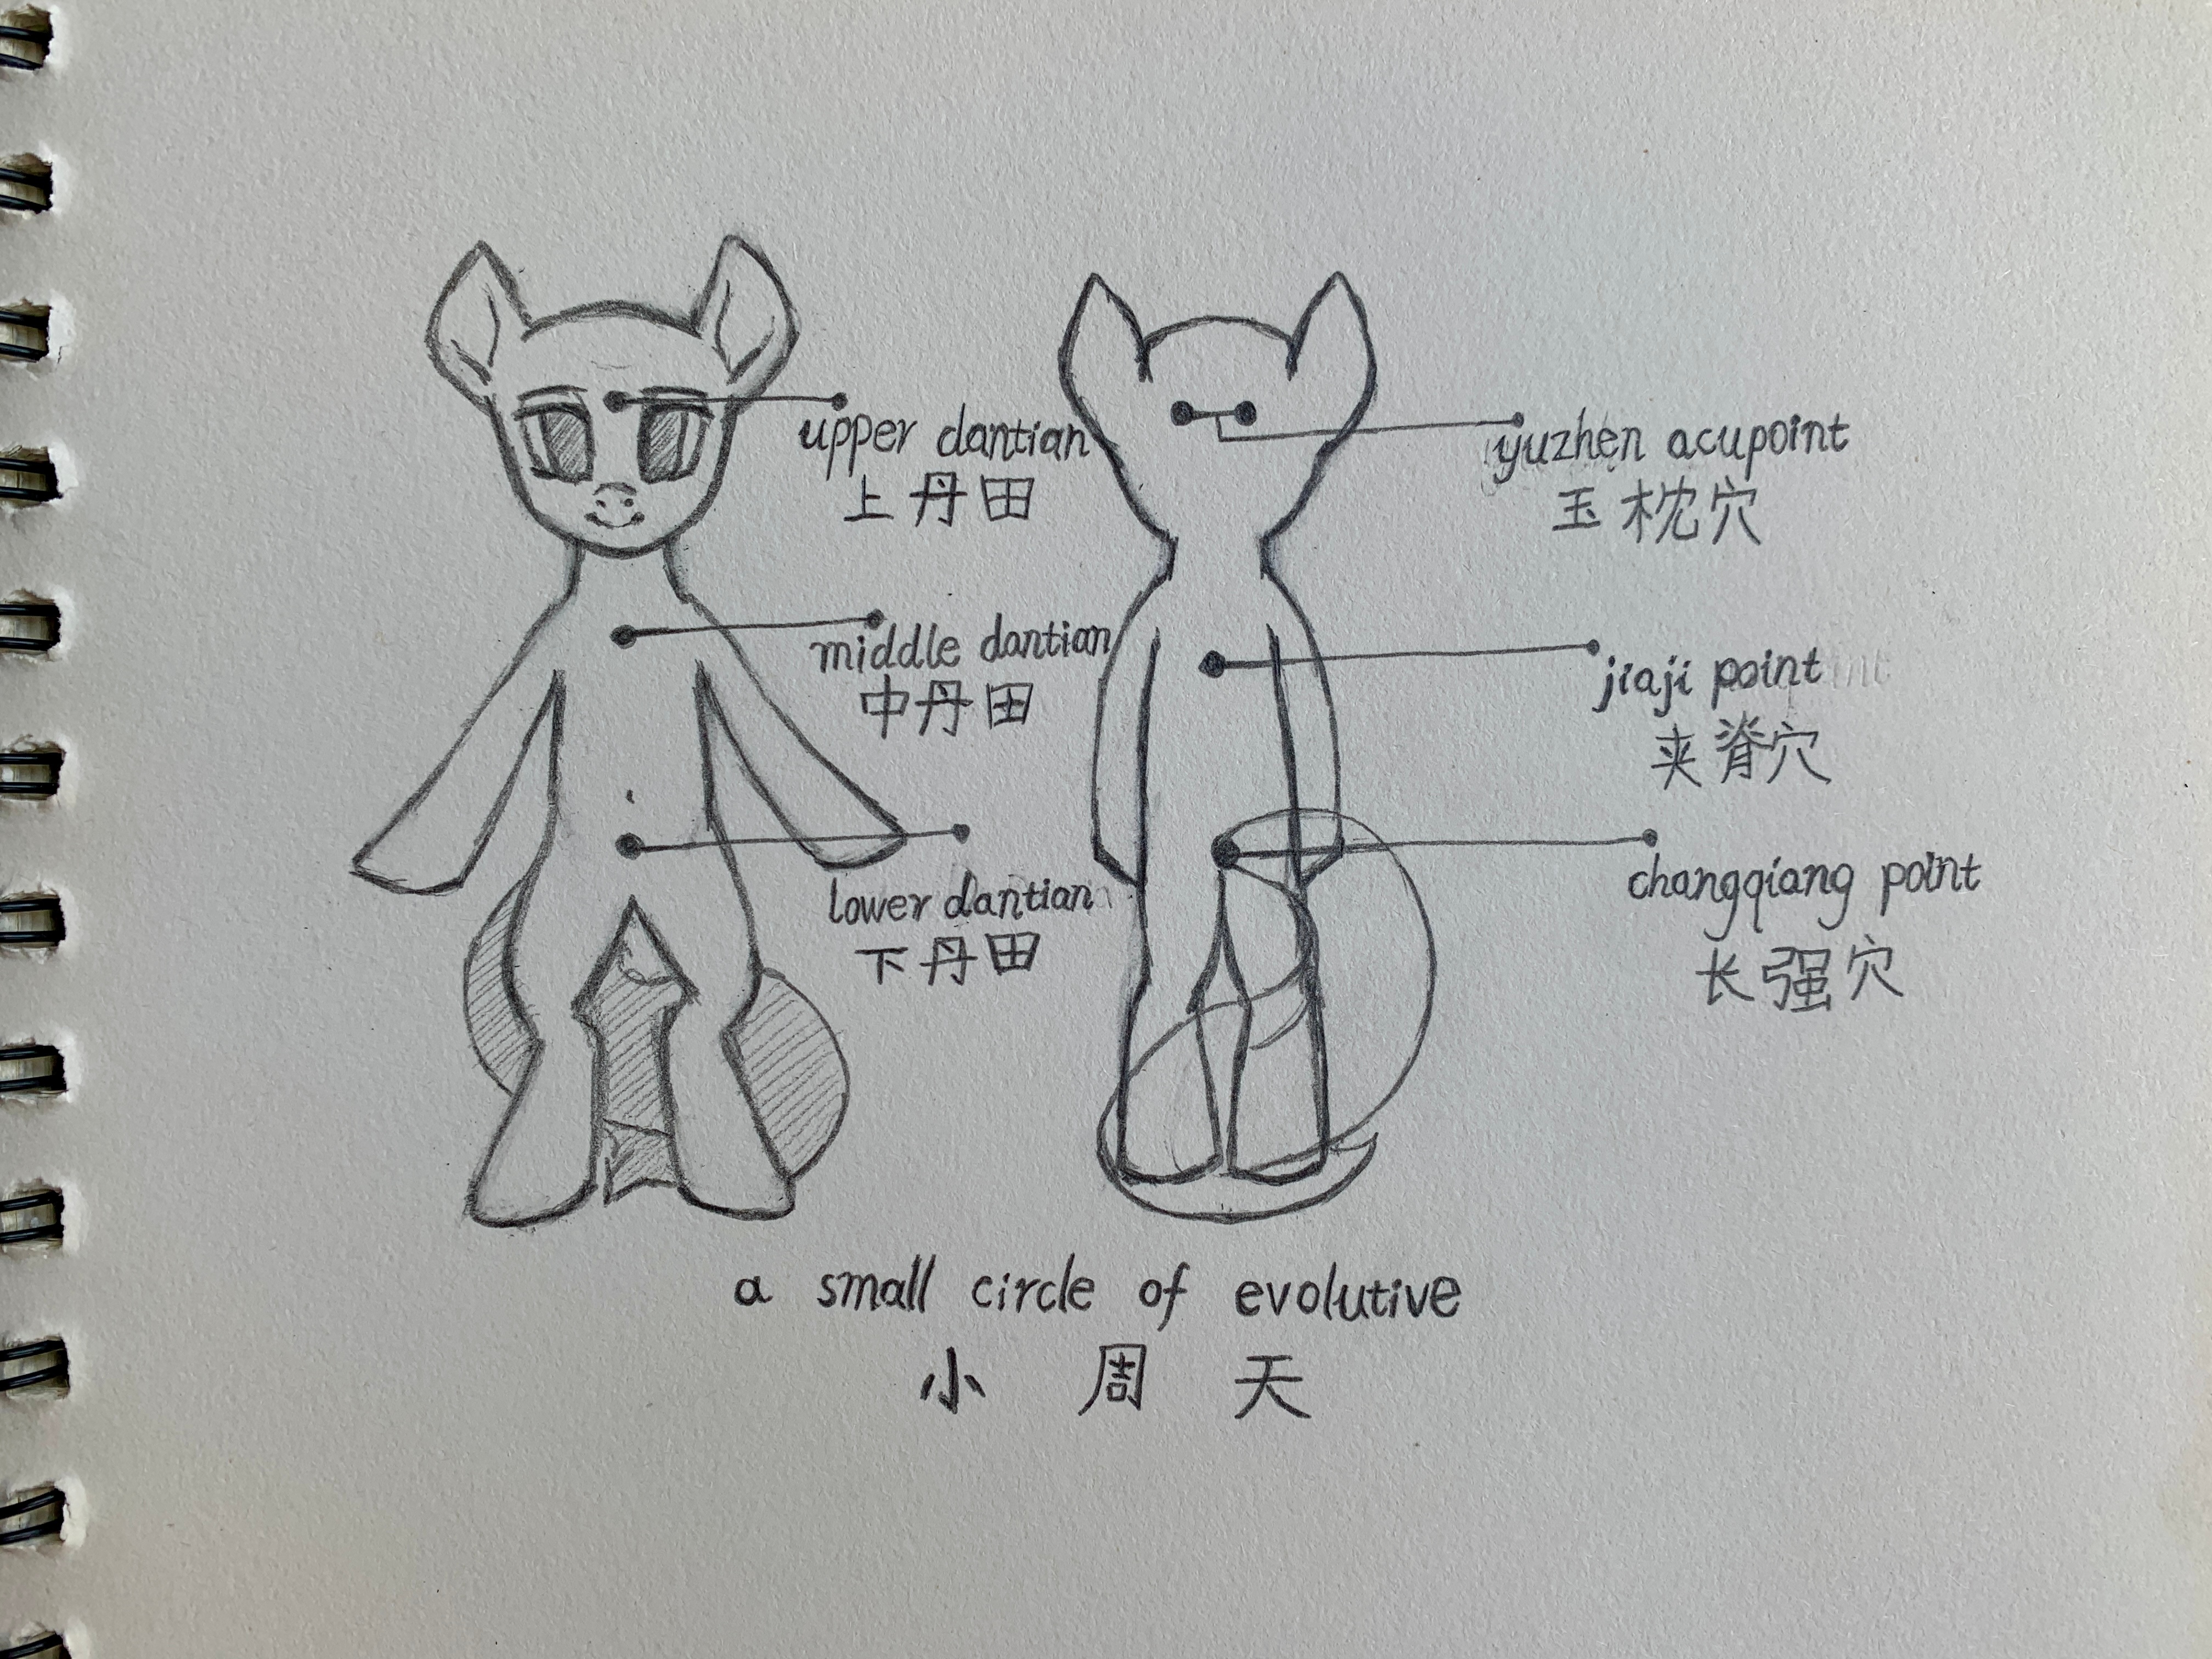 upper dantian
上丹田
middle dantian
中丹田
lower dantian
下丹田
yuzhen acupoint
玉枕穴
jiaji point
夹脊穴
changqiang point
长强穴
a small circle of evolutive
小周天